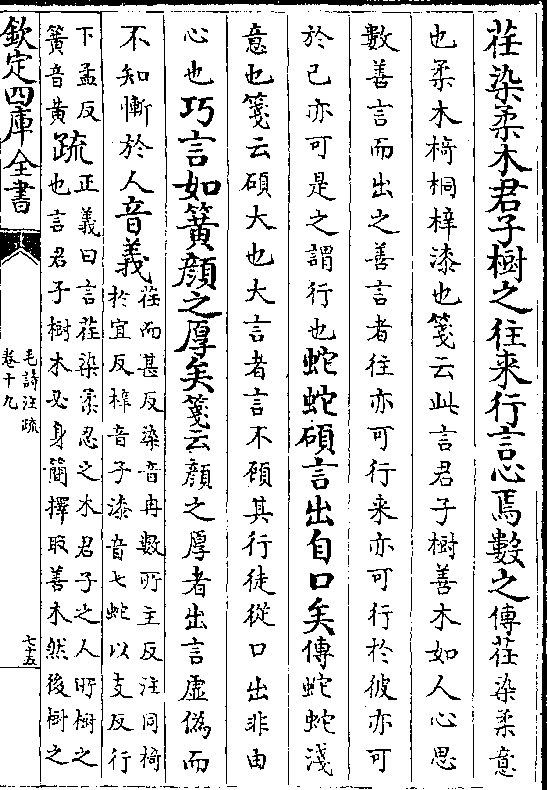 荏染柔木君子樹之往来行言心焉數之傳荏染柔意
也柔木椅桐梓漆也箋云此言君子樹善木如人心思
數善言而出之善言者往亦可行来亦可行於彼亦可
於己亦可是之謂行也蛇蛇碩言出自口矣傳蛇蛇淺
意也箋云碩大也大言者言不顧其行徒從口出非由
心也巧言如簧顔之厚矣箋云顔之厚者出言虚偽而
不知慚於人音義荏而甚反染音冉數所主反注同椅
於宜反梓音子漆音七蛇以支反行
下孟反
簧音黄疏正義曰言荏染柔忍之木君子之人所樹之
也言君子樹木必身簡擇取善木然後樹之
欽定四庫全書
毛詩注疏
卷十九
七十五